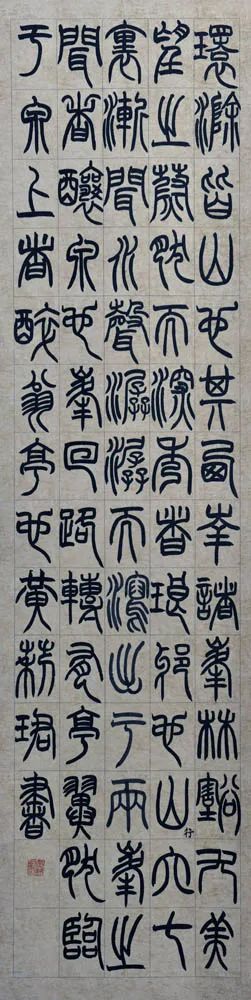 環滁皆山也其西南諸峯林壑尤美
望之蔚然而深秀者琅邪也山行六七
裏漸聞水聲潺潺而瀉出于兩峯之
間者釀泉也峯回路轉有亭翼然臨
于泉上者醉翁亭也黄薪珞書